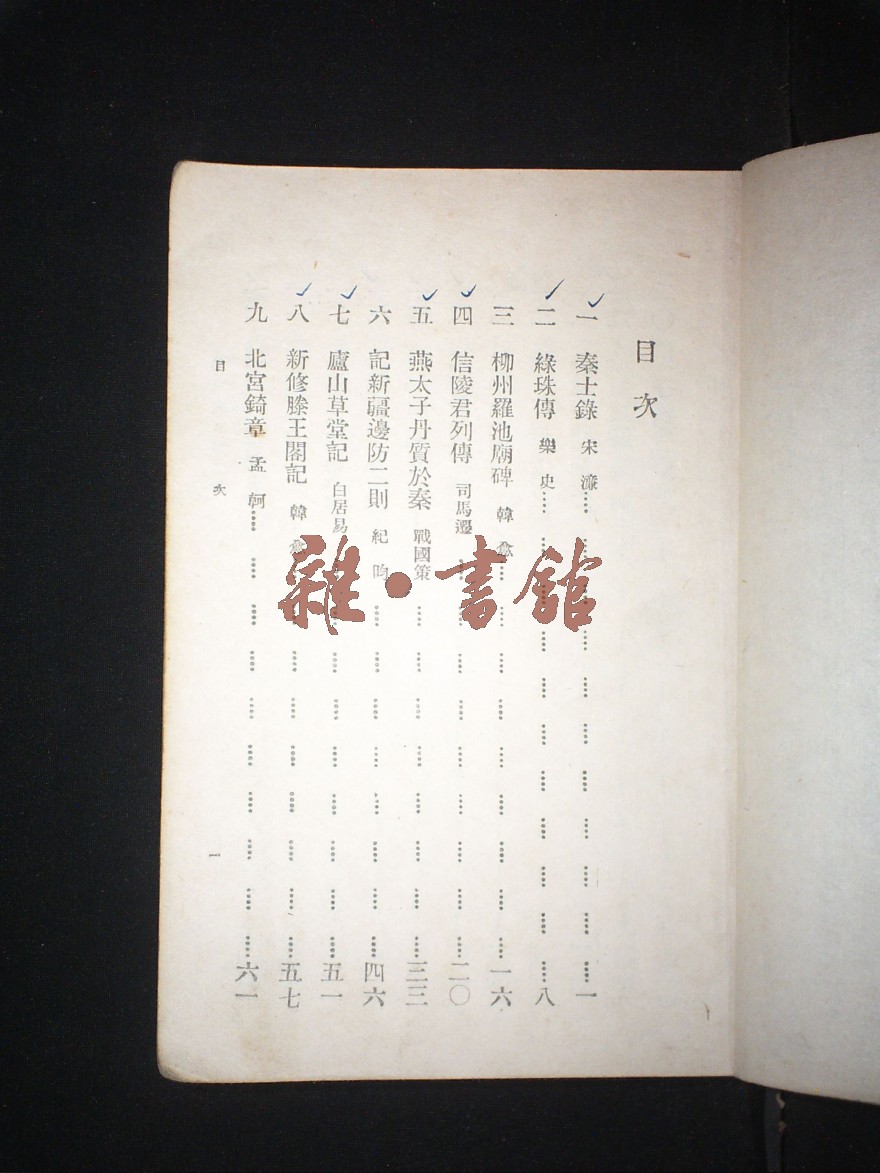 目次
一 秦士錄 宋濂 一
二 綠珠傳 樂史 八
三 柳州羅池廟碑 韓愈 一六
四 信陵君列傳 司馬遷 二〇
五 燕太子丹質於秦 戰國策 三三
六 記新疆邊防二則 紀昀 四六
七 廬山草堂記 白居易 五一
八 新修滕王閣記 韓愈 五七
九 北宮錡章 孟軻 六一
目次 一
雜·書館